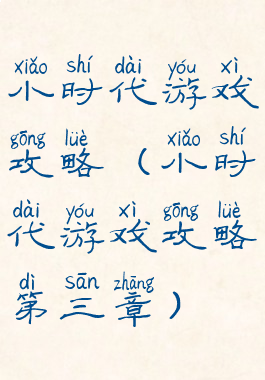 xiǎo shí dài yóu xì
小时代游戏
gōng lüè xiǎo shí
攻略（小时
dài yóu xì gōng lüè
代游戏攻略
dì sān zhāng
第三章）